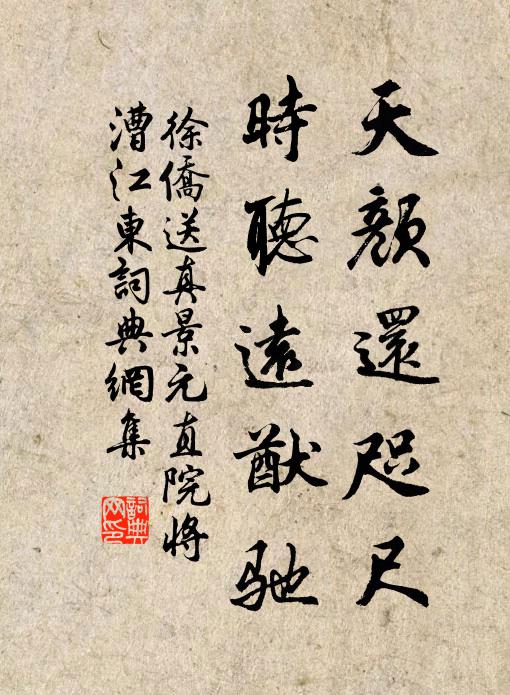 天顏還咫尺
時聽遠猷馳
徐僑送真景元直院將
漕江東詞典網集
詞典網印